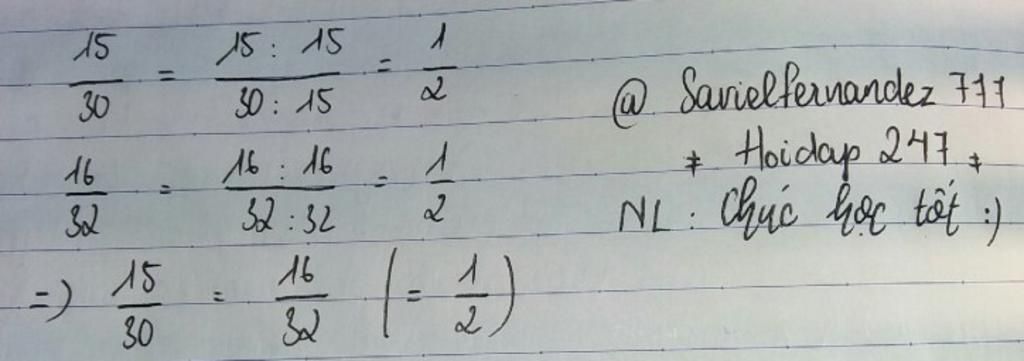 15/30 = 15 : 15/30 : 15 = 1/2
16/32 = 16 : 16/32 : 32 = 1/2
=) 15/30 = 16/32 (= 1/2)
@ Savielfernandez 711
* Hoidap 247 *
NL : Chúc học tốt :)